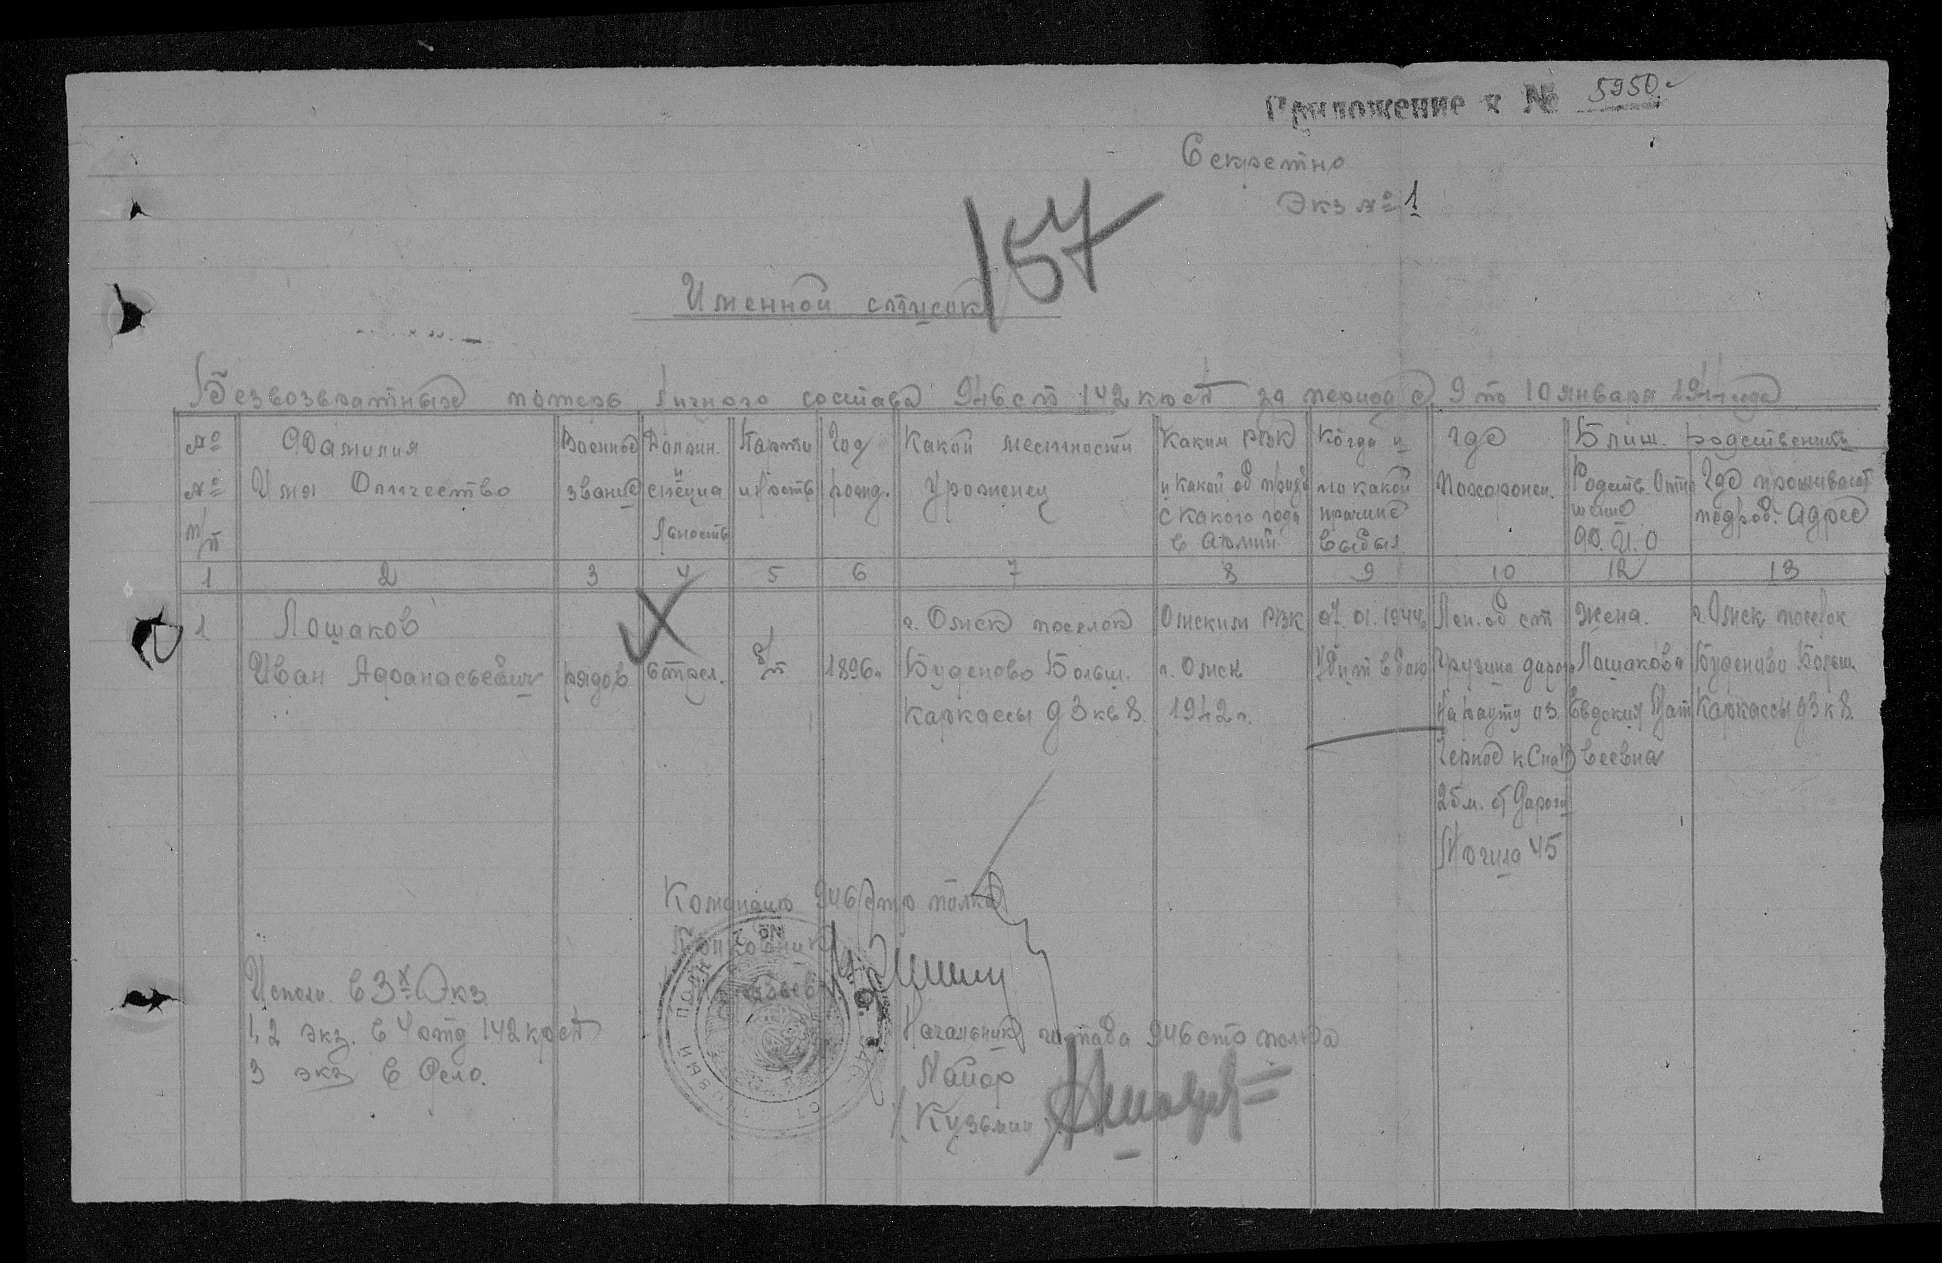 Приложение к № 5950.
Секретно
Экз № 1
157
Именной список
Безвозвратных потерь личного состава 946 сп 142 ксд за период с 9 по 10 января 1944 года
№ № п/п
Фамилия Имя Отчество
Военное звание
Должн. и специальность
Парти
Год рожд.
Какой местности уроженец
Каким РВК и какой обл
с какого года в армии
Когда и по какой причине выбыл
Где похоронен.
Ближ. родственник
Родств. отношение Ф.И.О
Где проживает подроб. адрес
1 2 3 4 5 6 7 8 9 10 12 13
1
Лошаков
Иван Афанасьевич
рядов.
стрел.
б/п
1896г.
г. Омск поселок
Буденово Больш.
Каркассы д 3 кв 8.
Омским РВК
г. Омск
1942г.
07.01.1944г
Убит в бою
Лен. об ст
Грузино дорога
25м. от дороги
Могила 45
жена.
Лошакова
Евдокия Мат
веевна
г. Омск поселок
Буденово Больш.
Каркассы д 3 к 8.
946 полка
Полковник
Исполн. в 3х Экз.
1, 2 экз. в 4 отд 142
3 экз в Дело.
Начальник штаба 946 полка
Майор
Кузьмин